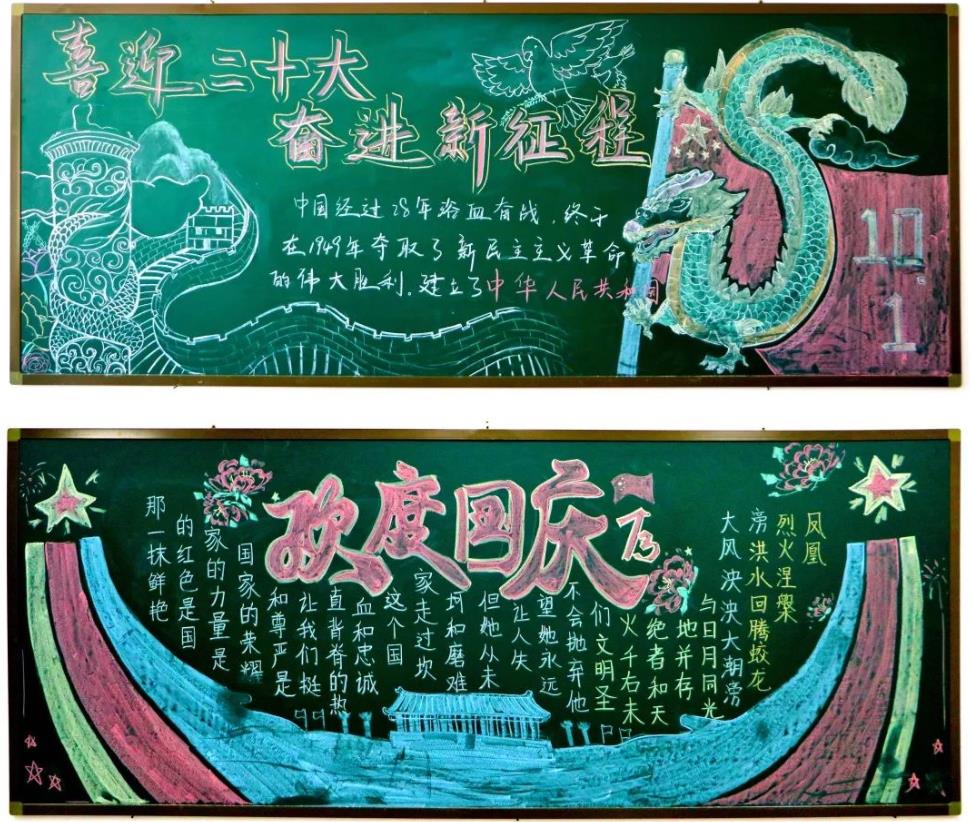 喜迎二十大
奋进新征程
中国经过28年浴血奋战，终于
在1949年夺取了新民主主义革命
的伟大胜利。建立了中华人民共和国
10
1
欢度国庆
73
那一抹鲜艳
的红色是国
家的力量是
国家的荣耀
和尊严是
让我们挺
直背脊的热
血和忠诚
这个国
家走过坎
坷和磨难
但她从未
让人失
望她永远
不会抛弃他
们文明圣
火千右未
绝者和天
地并存
与日月同光
大风泱泱大潮滂
滂洪水回腾蛟龙
烈火涅槃
凤凰